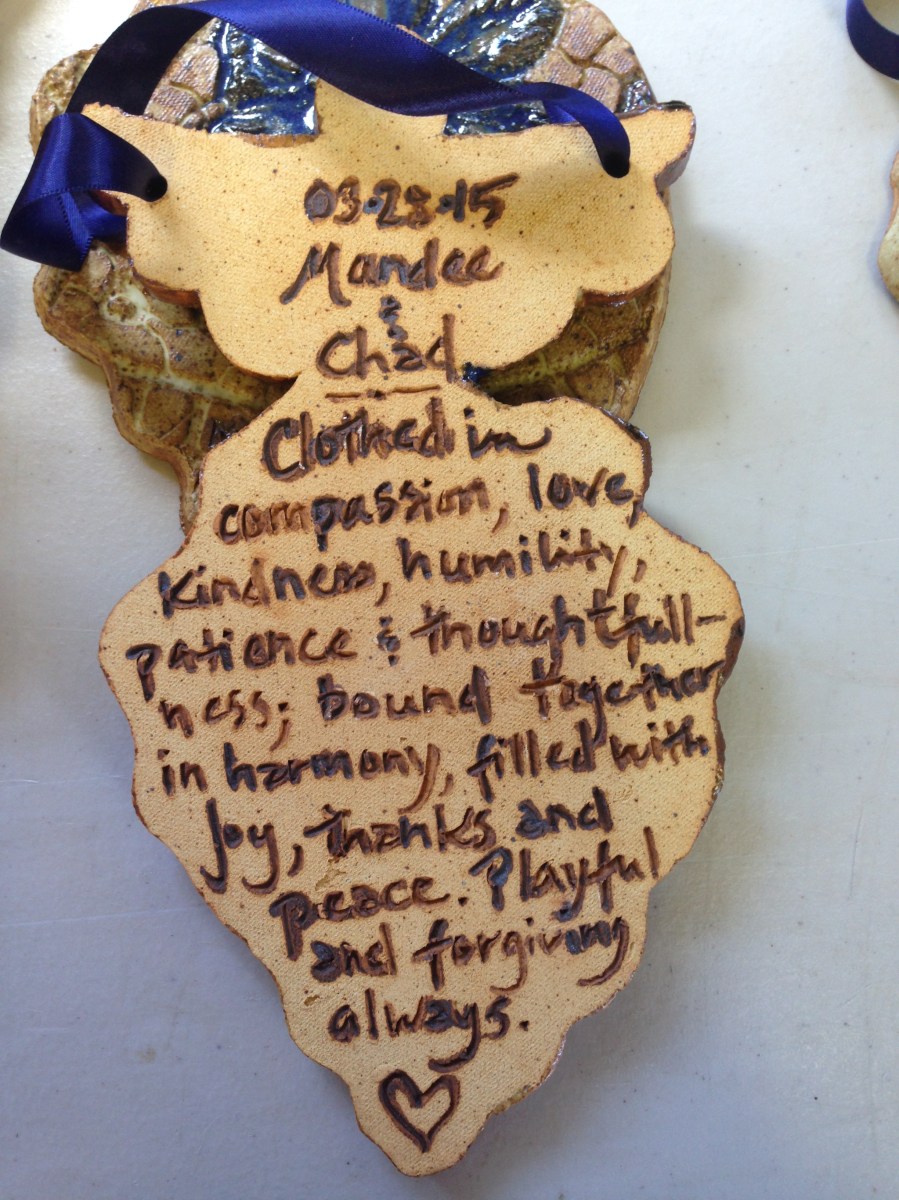 03·28·15
Mandee
&
Chad
Clothed in
compassion, love,
kindness, humility,
patience & thoughtfull-
ness; bound together
in harmony, filled with
Joy, thanks and
peace. Playful
and forgiving
always.